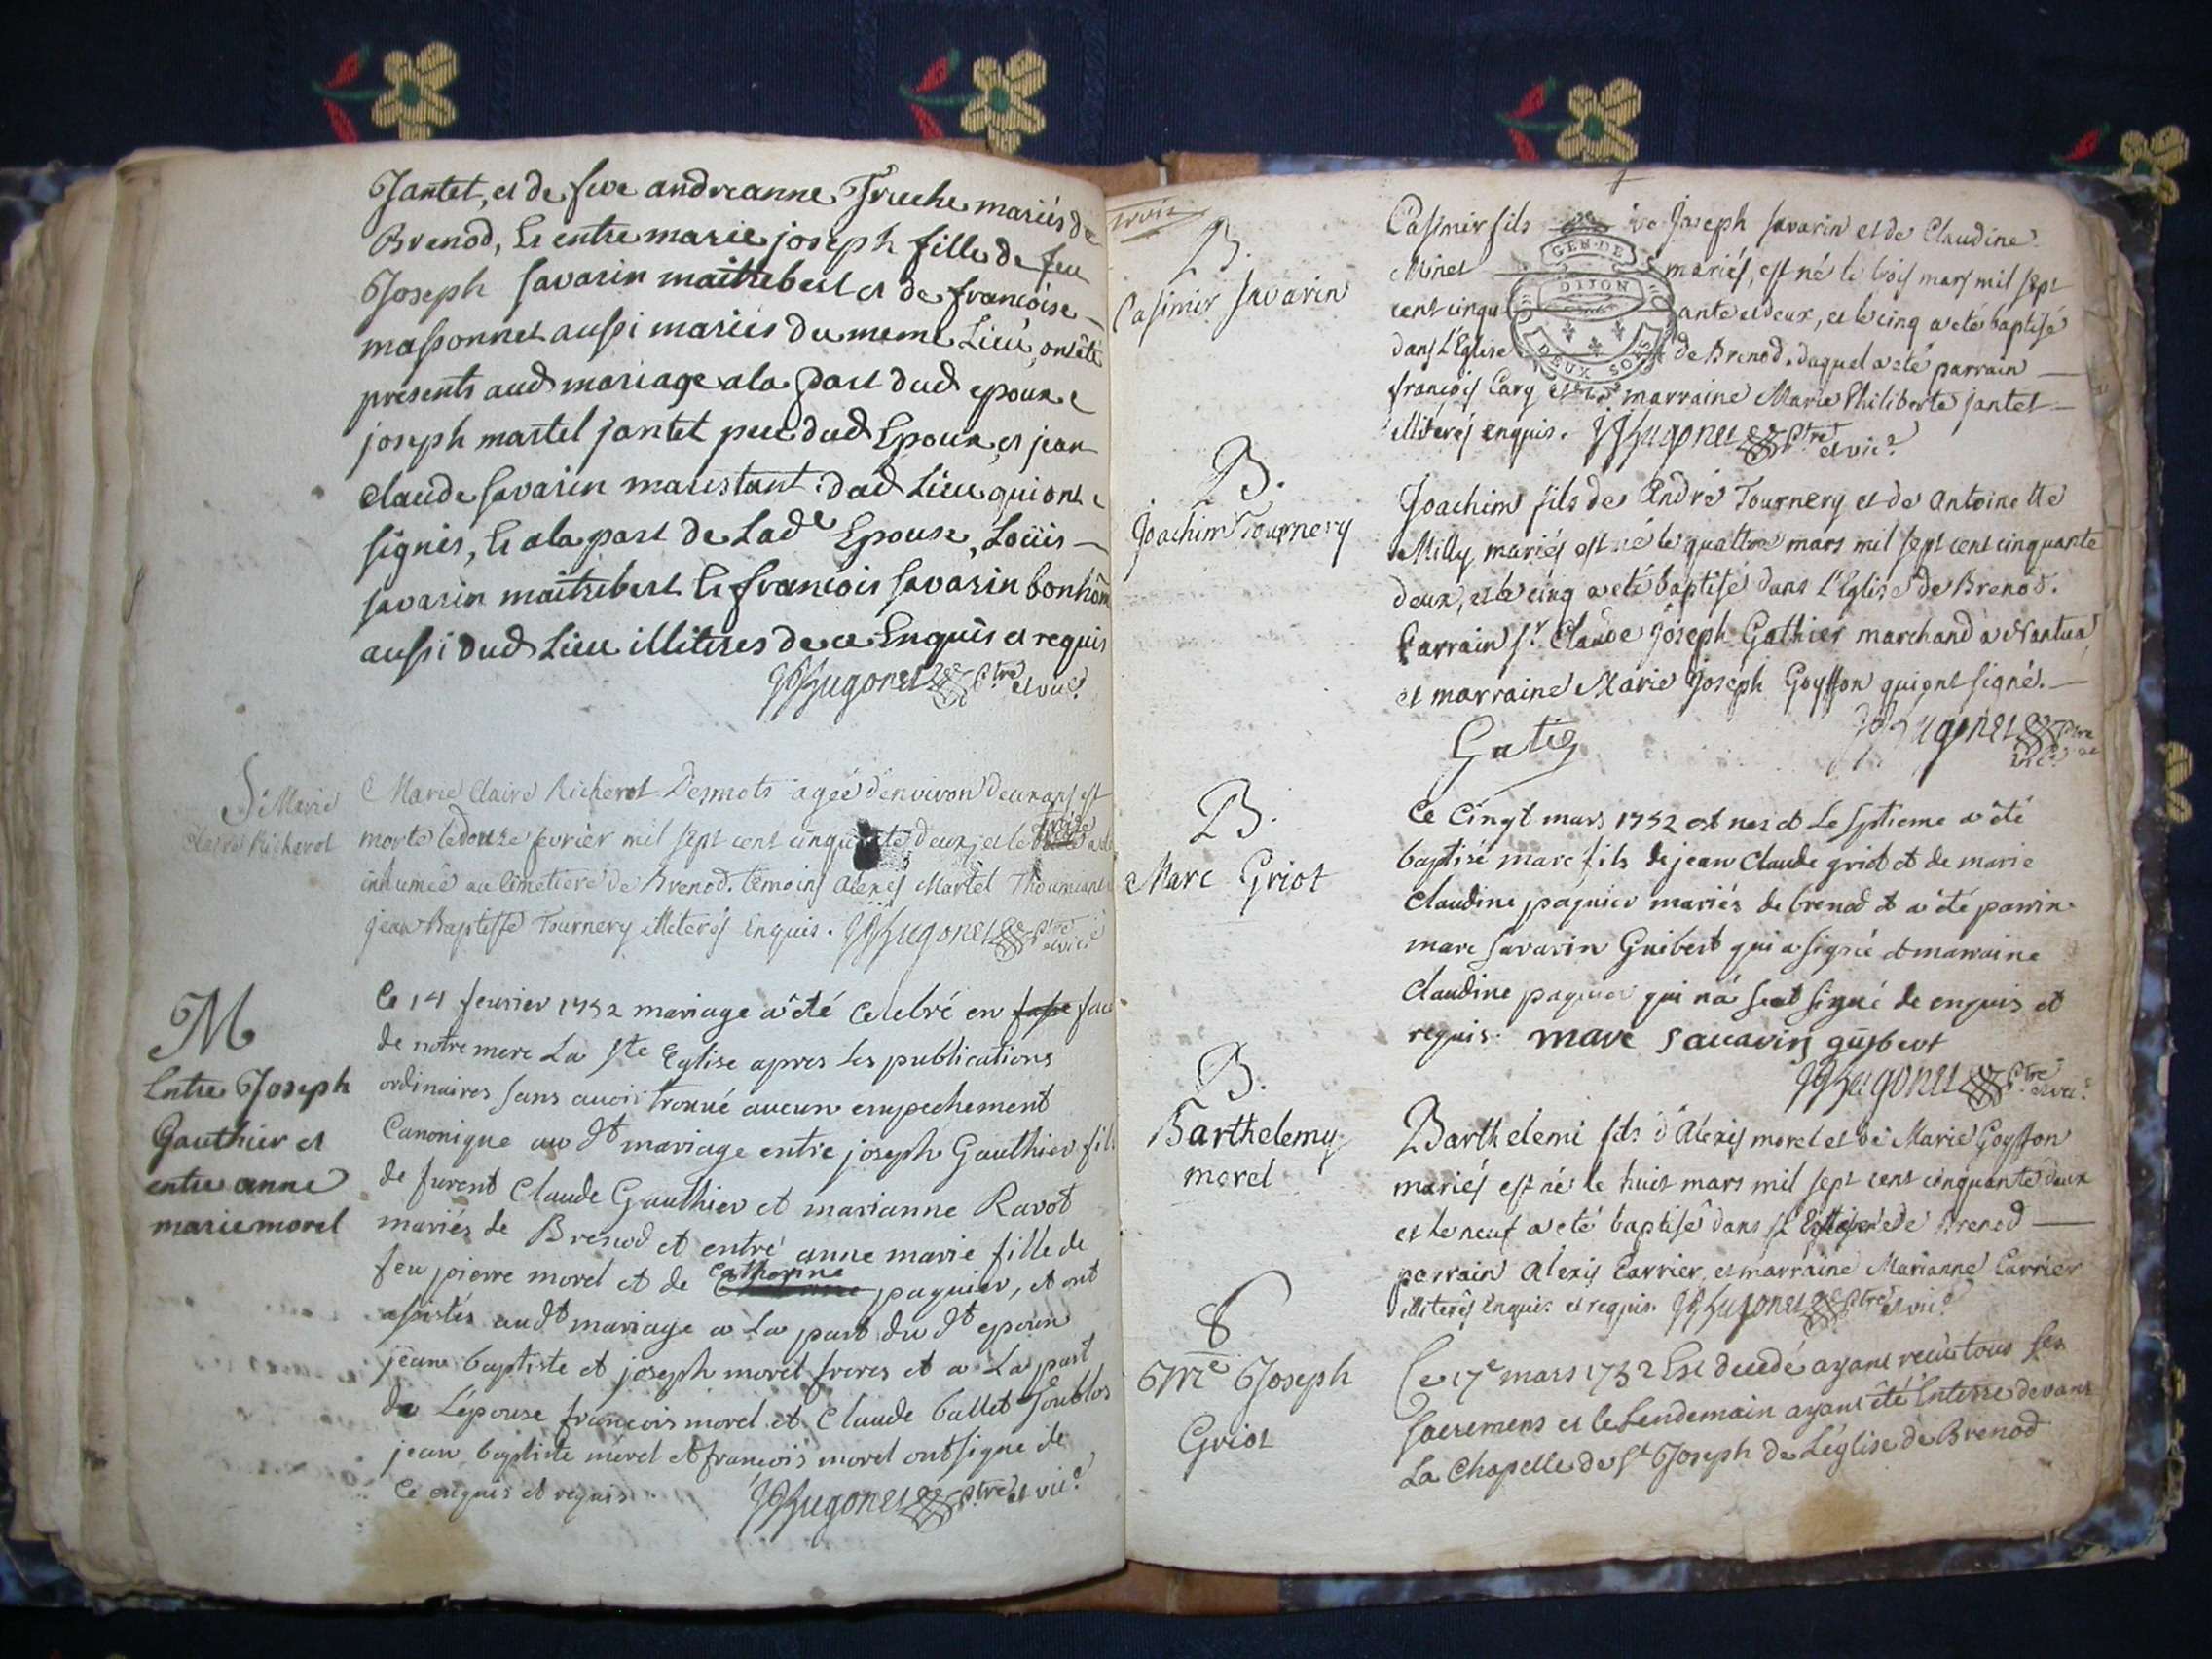 Jantet, et de feüe andreanne Truche mariés de
Brenod, Et entre marie joseph fille de feu
Joseph Savarin maitrebert et de francoise
massonnet aussi mariés du meme Lieu, ont été
presents aud mariage a la part dud epoux
joseph martel jantet pere dud Epoux, et jean
claude savarin marestant dud Lieu qui ont
signés, Et a la part de Lad.e Epouse, Loüis
savarin maitrebert Et francois savarin bonhom
aussi dud Lieu illiteres de ce Enquis et requis
JJHugonet Ptre et vic.e
S. Marie
Claire Richerot
Marie Claire Richerot Desmots agée d'environ deux ans est
morte le douze fevrier mil sept cent cinquante deux, et le treize a été
inhumée au cimetiere de Brenod. temoins Alexis Martel
jean Baptiste Tournery illiterés Enquis. JJHugonet Ptre et vic.e
M
Entre Joseph
Gauthier et
entre anne
marie morel
Ce 14 feurier 1752 mariage a été Celebré en face
de notre mere La Ste Eglise apres les publications
ordinaires sans auoir trouué aucun empechement
Canonique au dt mariage entre joseph Gauthier fils
de furent Claude Gauthier et marianne Ravot
mariés de Brenod et entré anne marie fille de
feu pierre morel et de Catherine paquier, et ont
assistés au dt mariage a La part du dt epoux
jeane baptiste et joseph morel freres et a La part
de L'epouse francois morel et Claude ballet Joublos
jean baptiste morel et francois morel ont signe de
Ce enquis et requis JJHugonet Ptre et vic.e
trois
B.
Casimir Savarin
Casimir fils de Joseph Savarin et de Claudine
Minet mariés, est né le trois mars mil sept
cent cinquante et deux, et le cinq a eté baptisé
dans L'Eglise de Brenod. Duquel a eté parrain
françois Cary et marraine Marie Philiberte jantet
illiterés enquis. JJHugonet Ptre et vic.e
GEN. DE
DIJON
DEUX SOLS
B.
Joachim Tournery
Joachim fils de André Tournery et de Antoinette
Milly mariés est né le quattre mars mil sept cent cinquante
deux, et le cinq a eté baptisé dans l'Eglise de Brenod.
Parrain Sr Claude joseph Gathier marchand a Nantua,
et marraine Marie Joseph Goyffon qui ont signé.
JJHugonet Ptre et vic.e
B.
Marc Griot
Ce Cinqt mars 1752 est nes et Le Sptieme a été
baptisé marc fils de jean Claude griot et de marie
Claudine paquier mariés de brenod et a été parrin
marc Savarin Guibert qui a signé et marraine
Claudine paquier qui n'a seut signé de enquis et
requis. marc Sauarin guybert
JJHugonet Ptre et vic.e
B.
Barthelemy
morel
Barthelemi fils d'Alexis morel et de Marie Goyffon
mariés est né le huit mars mil sept cent cinquante deux
et le neuf a eté baptisé dans l'Eglise de Brenod
parrain Alexis Carrier, et marraine Marianne Carrier
illiterés Enquis et requis. JJHugonet Ptre et vic.e
Me Joseph
Griot
Ce 17e mars 1752 Est decedé ayant reçüs tous ses
sacremens et le Lendemain ayant été Enterré devant
La Chapelle de St Joseph de L'église de Brenod